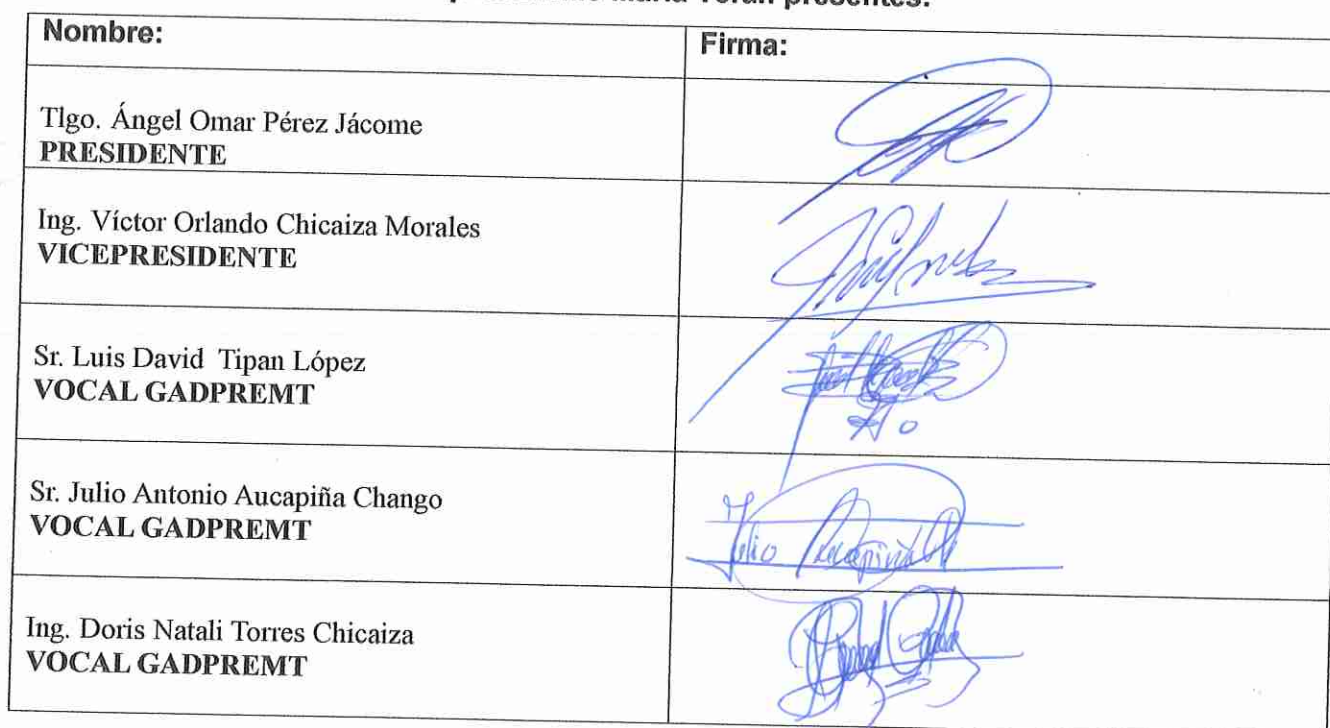 María Terán presentes.
Nombre:
Firma:
Tlgo. Ángel Omar Pérez Jácome
PRESIDENTE
Ing. Víctor Orlando Chicaiza Morales
VICEPRESIDENTE
Sr. Luis David Tipan López
VOCAL GADPREMT
Sr. Julio Antonio Aucapiña Chango
VOCAL GADPREMT
Julio Aucapiña
Ing. Doris Natali Torres Chicaiza
VOCAL GADPREMT